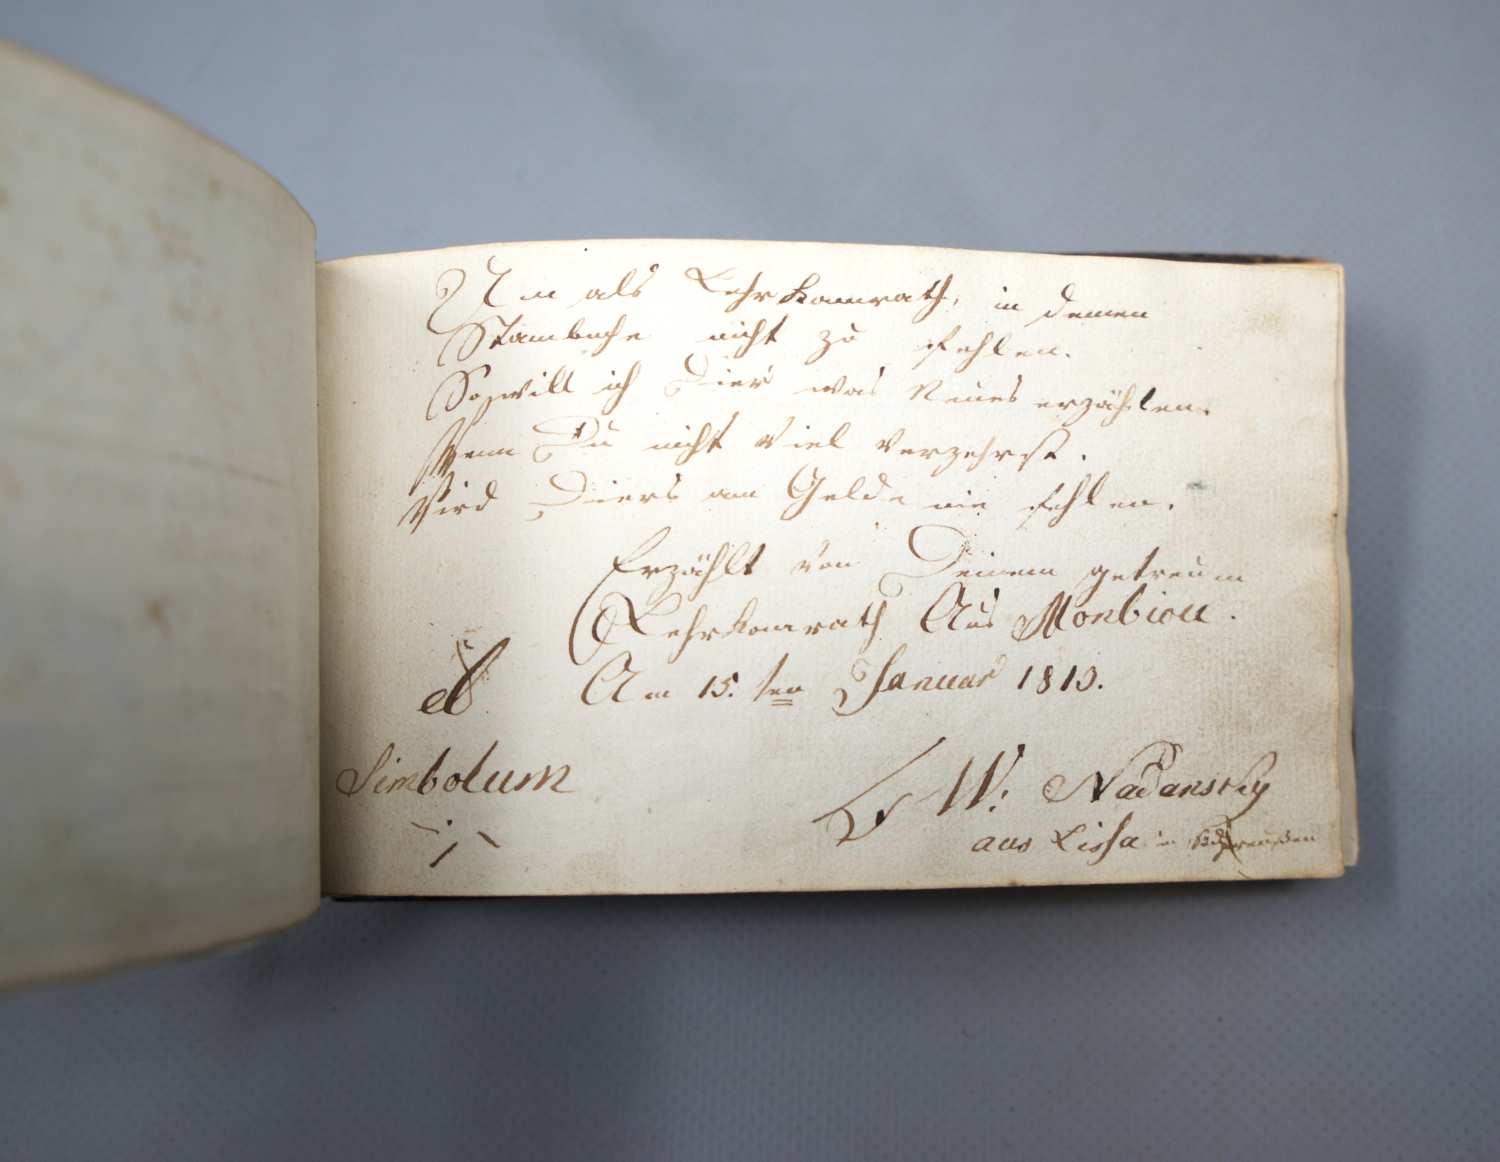 Um als Lehrkamrath, in deinen
Stambuche nicht zu fehlen.
So will ich Dier was Neues erzählen.
Wenn Du nicht viel verzehrst.
Wird Diers am Gelde nie fehlen.
Erzählt von Deinem getreuen
Lehrkamrath Aus Monbiou.
Am 15. ten Januar 1810.
Simbolum
F W. Nadansky
aus Lissa in